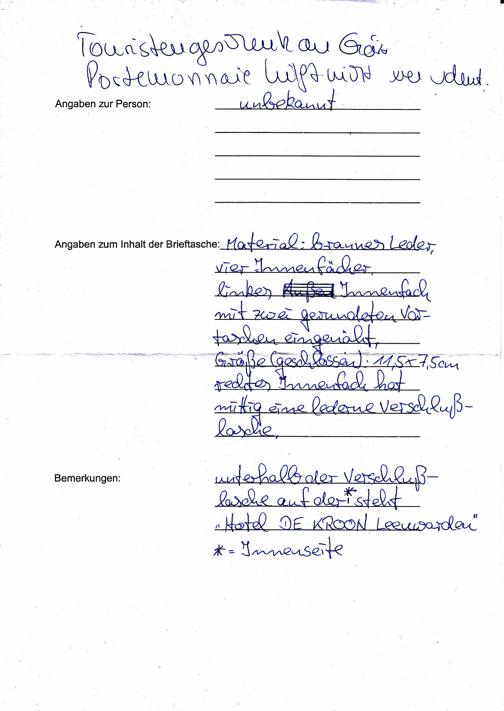 Touristengeschenk an
Portemonnaie hilft nicht
Angaben zur Person: unbekannt
Angaben zum Inhalt der Brieftasche: Material: braunes Leder,
vier Innenfächer,
linkes Innenfach
mit zwei gerundeten Vor-
taschen eingenäht,
Größe (geschlossen): 11,5x7,5cm
rechtes Innenfach hat
mittig eine lederne Verschluß-
lasche,
Bemerkungen: unterhalb der Verschluß-
lasche auf der * steht
"Hotel DE KROON Leeuwarden"
* = Innenseite